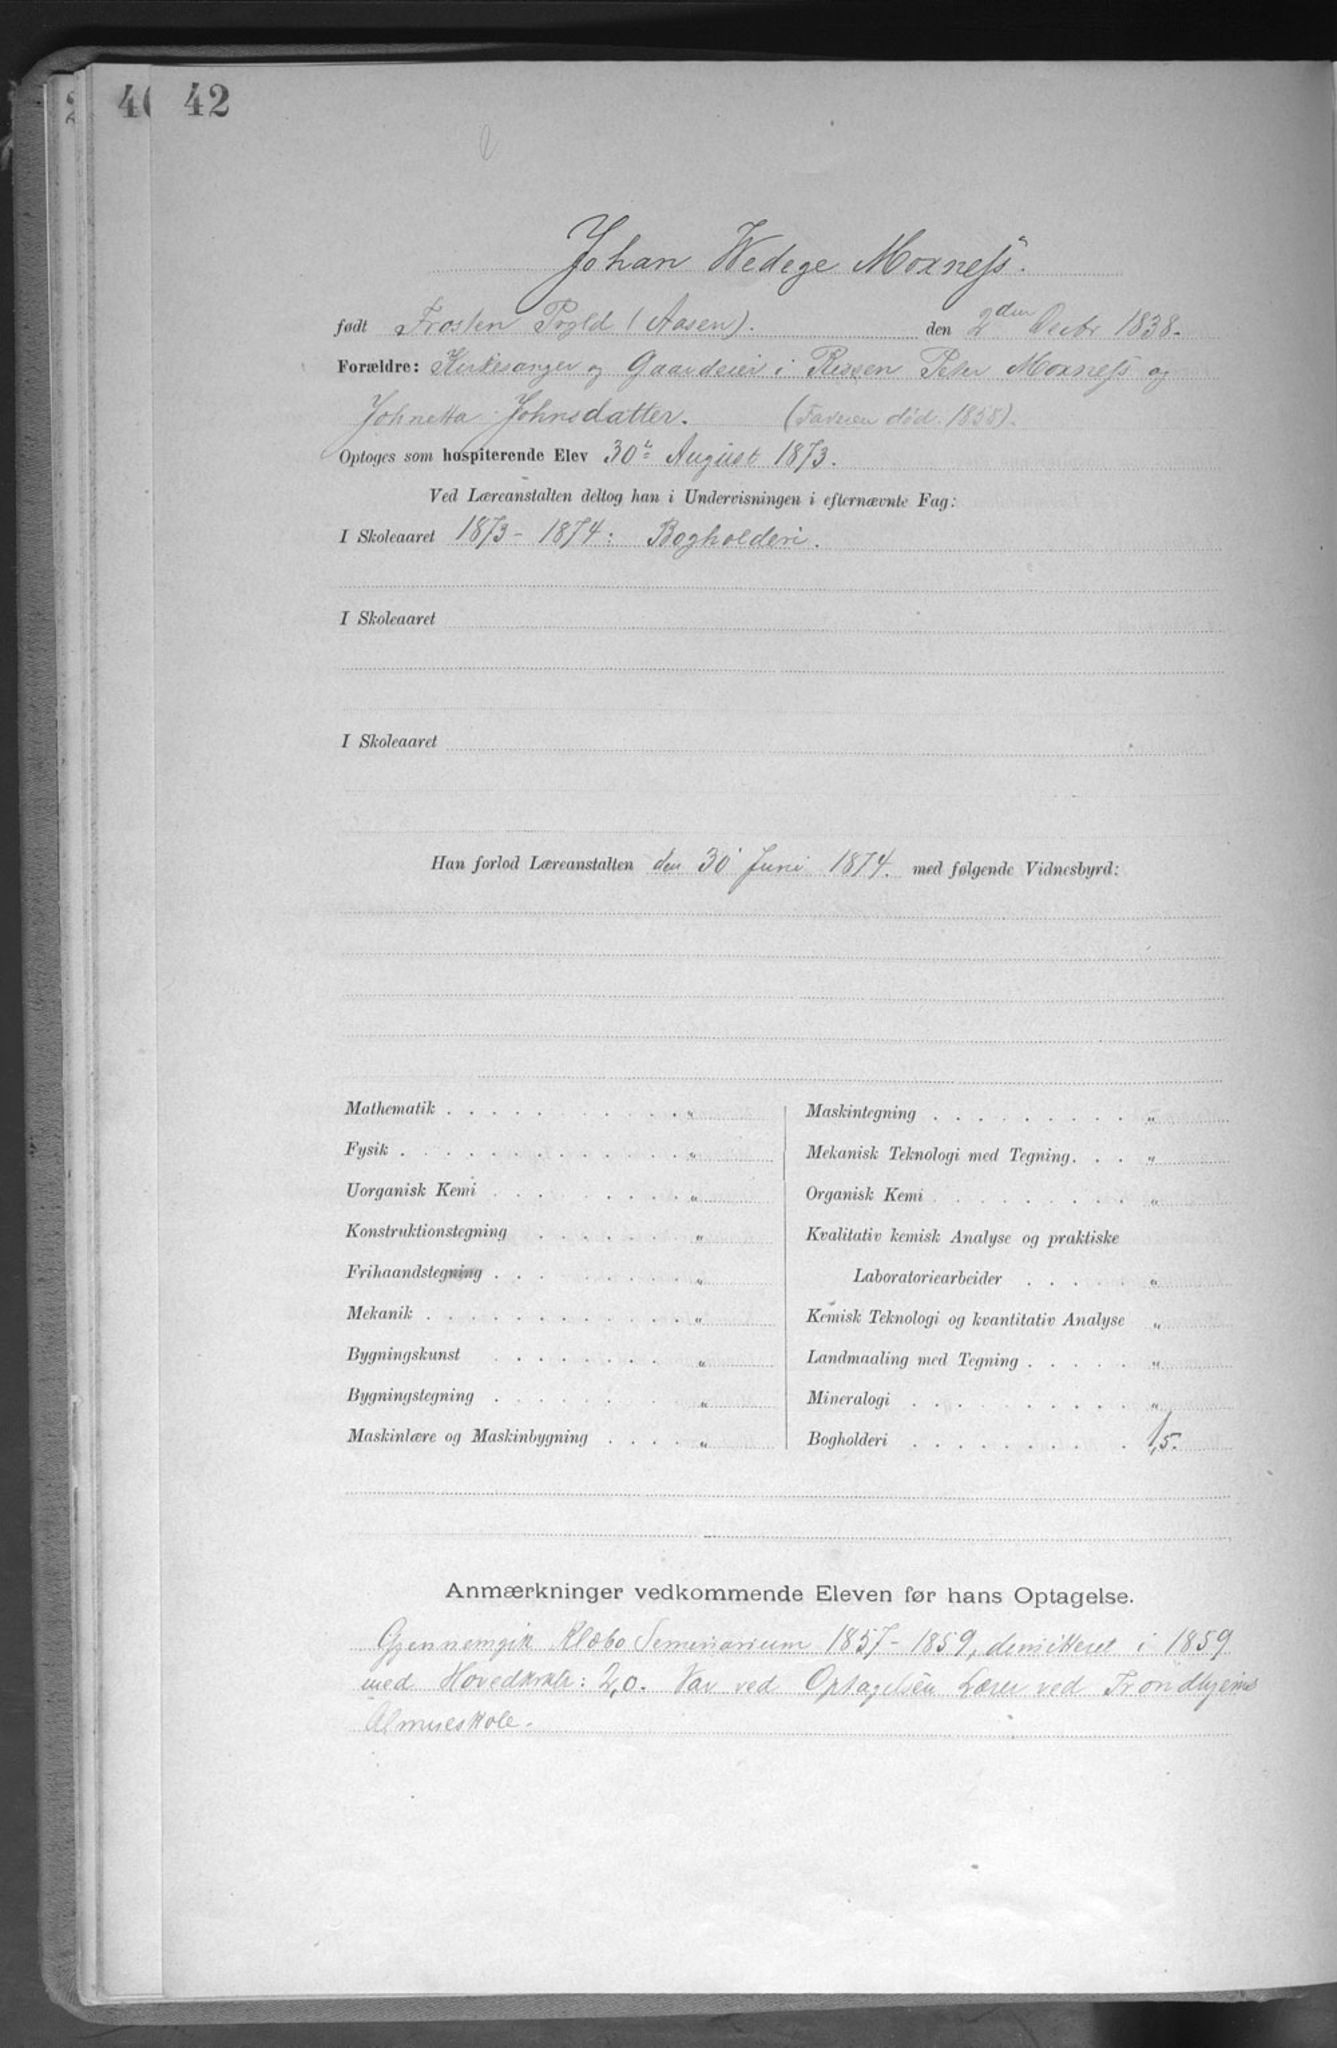 42
Johan Wedege Moxness.
født Frosten Prgld (Aasen). den 2den Decbr 1838.
Forældre: Kirkesanger og Gaardeier i Rissen Peter Moxness og
Johnetta Johnsdatter. (Faderen død 1858).
Optoges som hospiterende Elev 30te August 1873.
Ved Læreanstalten deltog han i Undervisningen i efternævnte Fag:
I Skoleaaret 1873-1874: Bogholderi.
I Skoleaaret
I Skoleaaret
Han forlod Læreanstalten den 30 Juni 1874. med følgende Vidnesbyrd:
Mathematik . . . . . . . . . . . "
Fysik . . . . . . . . . . . . . "
Uorganisk Kemi . . . . . . . . . "
Konstruktionstegning . . . . . . "
Frihaandstegning . . . . . . . . "
Mekanik . . . . . . . . . . . . "
Bygningskunst . . . . . . . "
Bygningstegning . . . . . . . "
Maskinlære og Maskinbygning . . . . "
Maskintegning . . . . . . . . . "
Mekanisk Teknologi med Tegning. . . "
Organisk Kemi . . . . . . . . . "
Kvalitativ kemisk Analyse og praktiske
Laboratoriearbeider . . . . . "
Kemisk Teknologi og kvantitativ Analyse "
Landmaaling med Tegning . . . . . "
Mineralogi . . . . . . . . . . "
Bogholderi . . . . . . . . . . 1,5.
Anmærkninger vedkommende Eleven før hans Optagelse.
Gjennemgik Klæbo Seminarium 1857-1859, demitteret i 1859
med Hovedkrktr: 2,0. Var ved Optagelsen Lærer ved Trondhjems
Almueskole.